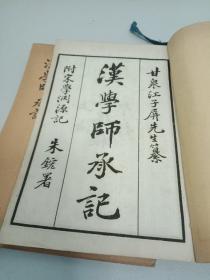 甘泉江子屏先生纂
漢學師承記
附宋學淵源記
朱鋐署